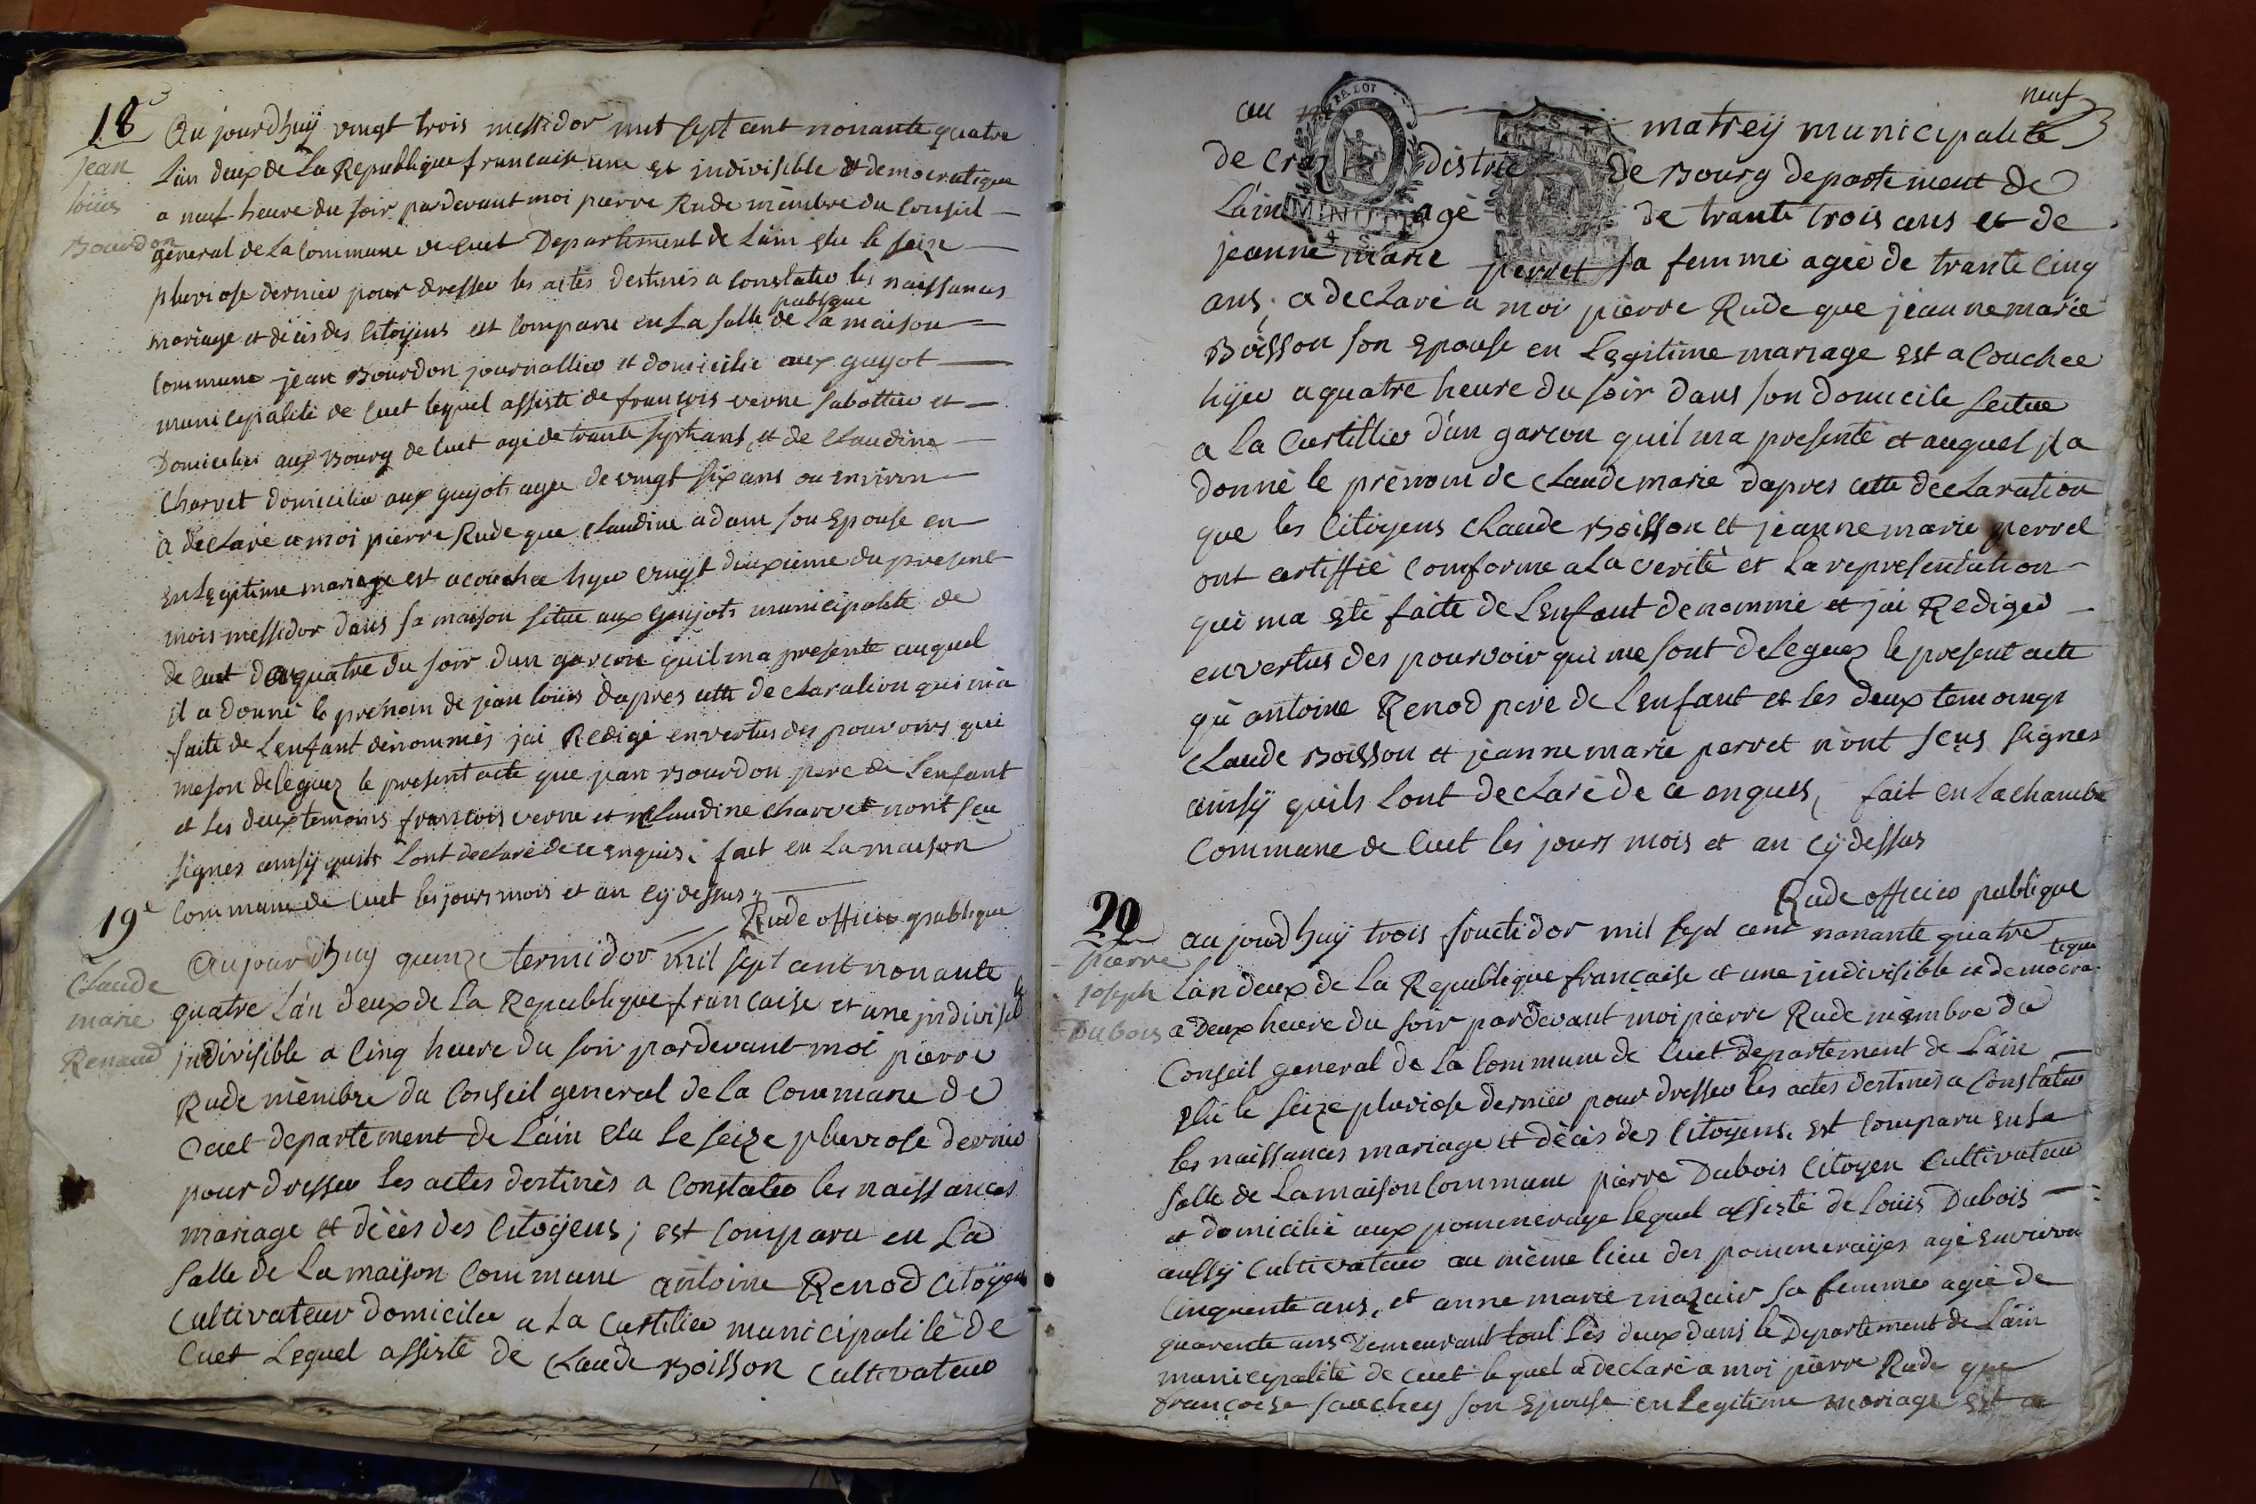 18e
jean
loüis
Bourdon
Aujourdhuÿ vingt trois messidor mil sept cent nonante quatre
L'an deux de La Republique francaise une et indivisible & democratique
a neuf heure du soir pardevant moi pierre Rude mèmbre du Conseil
general de La Commune de Cuet Departement de L'ain elu le seize
pluviose dernier pour dresser les actes destinés a constater les naissances
mariage et décès des Citoÿens est Comparu en La salle publique de La maison
Commune jean Bourdon journallier et domicilié aux guyot
municipalité de Cuet lequel assisté de francois verne sabottier et
Domicilié aux Bourg de Cuet agé de trante sept ans, et de Claudine
Charvet domiciliée aux guyots agée de vingt six ans ou environ
à declaré a moi pierre Rude que Claudine adam son Epouse en
en Legitime mariage est acouchee hyer vingt deuxieme du present
mois messidor dans sa maison situe aux Guyots municipalité de
de Cuet a quatre du soir dun garcon quil ma presenté auquel
il a donné le prenom de jean loüis dapres cette declaration qui m'a
faite de Lenfant dénommés jai Redigé envertus des pouvoirs qui
me son deléguez le present acte que jean Bourdon pere de Lenfant
et Les deux temoins francois verne et Claudine Charvet nont seu
signes ainsÿ quils Lont declaré de ce enquis; fait en La maison
Commune de Cuet les jours mois et an cy dessus
Rude officier publique
19e
Claude
marie
Renaud
Aujourdhuy quinze termidor mil sept cent nonante
quatre L'an deux de La Republique francaise et une indivisible
indivisible a Cinq heure du soir pardevant moi pierre
Rude mèmbre du Conseil general de La Commune de
Cuet departement de L'ain elu Le seize pluviose dernier
pour dresser Les actes destinés a Constater les naissances
mariage et décès des Citoÿens; est Comparu en La
salle de La maison Commune antoine Renod Citoÿen
Cultivateur domicilié a La Curtilier municipalité de
Cuet Lequel assisté de Claude Boisson Cultivateur
neuf
au matreÿ municipalité
de Cras district de Bourg departement de
L'ain agé de trante trois ans et de
jeanne marie perret sa femme agée de trante Cinq
ans, a declaré a moi pierre Rude que jeanne marie
Boisson son Epouse en Legitime mariage est acouchee
hÿer a quatre heure du soir dans son domicile scitue
a La Curtillier d'un garcon quil ma presenté et auquel il a
donné le prènom de Claude marie dapres cette declaration
que les Citoyens Claude Boisson et jeanne marie perret
ont certiffié Comforme a La verité et La representation
qui ma eté faite de Lenfant denommé et jai Rediger
envertus des pourvoir qui me sont deleguez le present acte
qu'antoine Renod pere de Lenfant et les deux temoings
Claude Boisson et jeanne marie perret n'ont seus signes
ainsÿ quils Lont declaré de ce enquis, fait en La chambe
Commune de Cuet les jours mois et an cÿ dessus
Rude officier publique
20
pierre
joseph
Dubois
aujourdhuÿ trois fructidor mil sept cent nonante quatre
Lan deux de La Republique francaise et une indivisible et democratique
a Deux heure du soir pardevant moi pierre Rude mèmbre du
Conseil general de La Commune de Cuet departement de L'ain
elu le seize pluviose dernier pour dresser les actes destinés a Constater
les naissances mariage et décès des Citoyens. est Comparu en La
salle de La maison Commune pierre Dubois Citoyen Cultivateur
et domicilié aux pommeraye lequel assisté de Loüis Dubois
aussÿ Cultivateur au mème lieu des pommeraÿes agé environ
Cinquente ans, et anne marie mazuir sa femme agée de
quarente ans Demeurant tout Les deux dans le Departement de L'ain
municipalité de Cuet lequel a declaré a moi pierre Rude que
francoise sauchey son Epouse en Legitime mariage est a